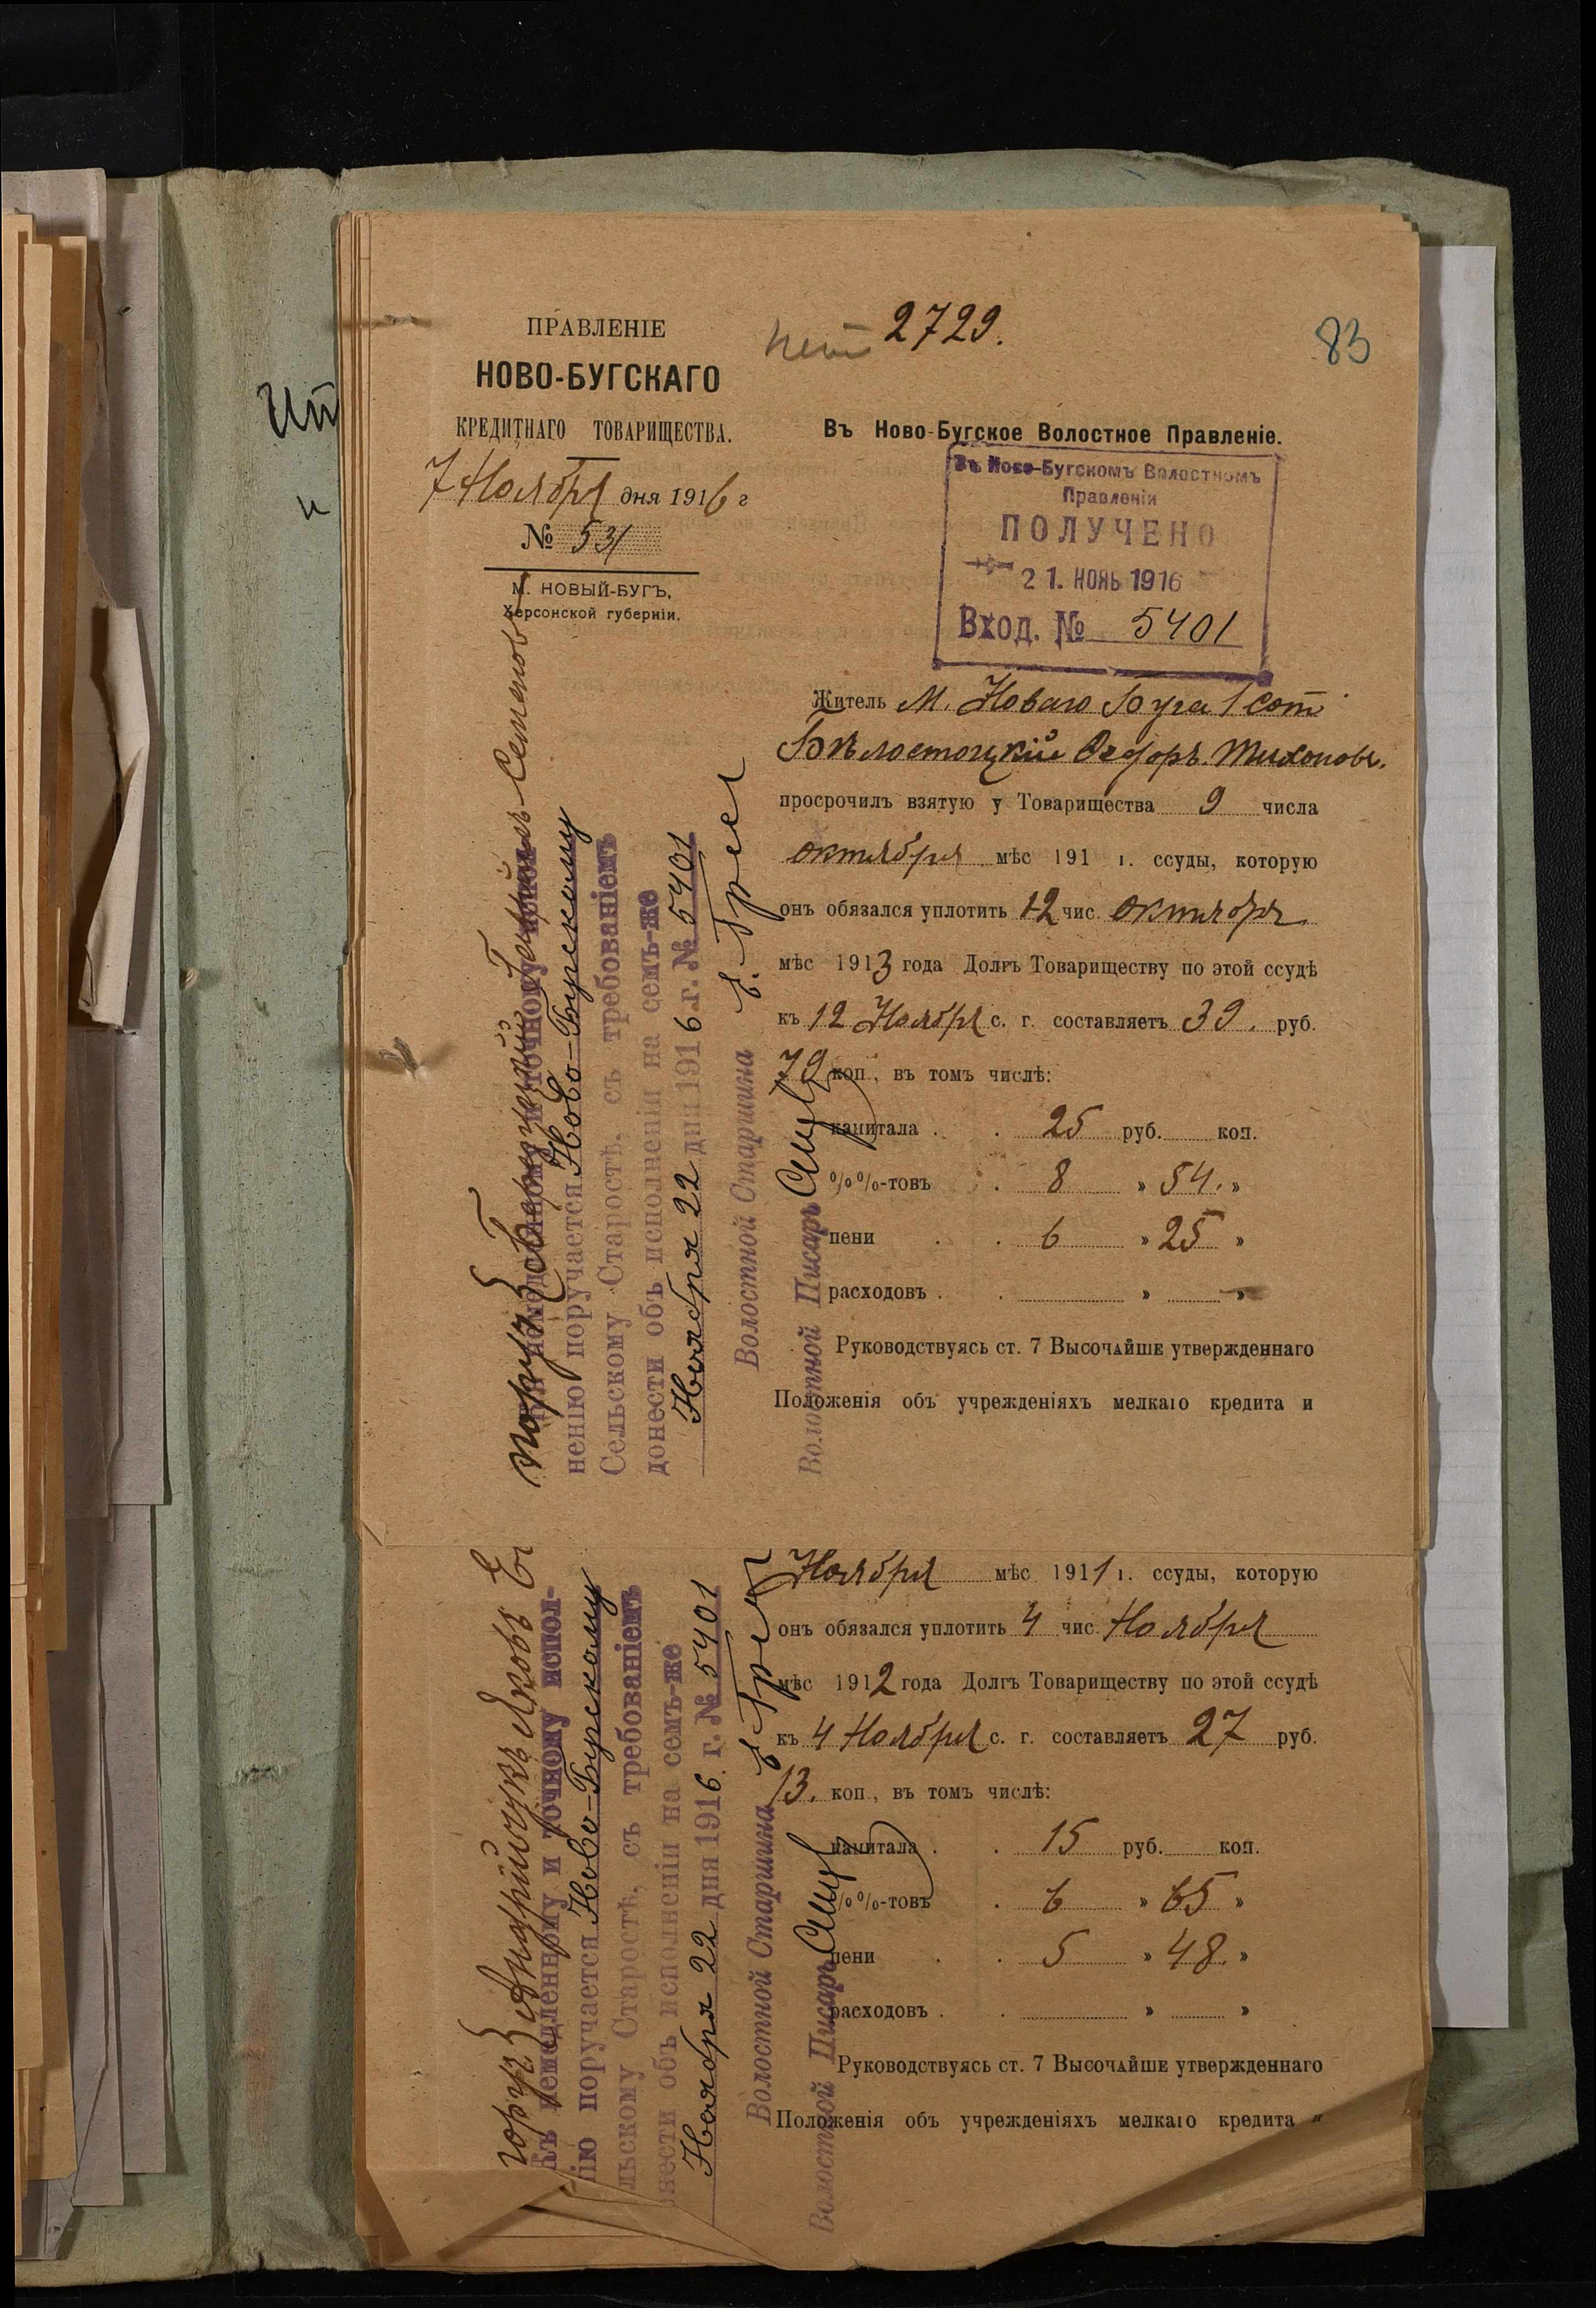 Ит
и
ПРАВЛЕНІЕ
НОВО-БУГСКАГО
КРЕДИТНАГО ТОВАРИЩЕСТВА.
7 Ноября дня 1916 г
№ 531
М. НОВЫЙ-БУГЪ,
Херсонской губерніи.
2729.
83
Въ Ново-Бугское Волостное Правленіе.
Въ Ново-Бугскомъ Волостномъ
Правленіи
ПОЛУЧЕНО
21. НОЯЬ 1916
Вход. № 5401
Житель М. Новаго Буга 1 сот
Бѣлостоцкій Ѳедоръ Тихоновъ.
просрочилъ взятую у Товарищества 9 числа
октября мѣс 191 г. ссуды, которую
онъ обязался уплотить 12 чис. октября
мѣс 1913 года Долгъ Товариществу по этой ссудѣ
къ 12 Ноября с. г. составляетъ 39. руб.
79 коп., въ томъ числѣ:
капитала . . 25 руб. коп.
%%-товъ . 8 » 54. »
пени . . 6 » 25 »
расходовъ . . » »
Руководствуясь ст. 7 Высочайше утвержденнаго
Положенія объ учрежденіяхъ мелкаго кредита и
поруч
немедленному и точному испол-
ненію поручается Ново-Бугскому
Сельскому Старостѣ, съ требованіемъ
донести объ исполненіи на семъ-же
Ноября 22 дня 1916 г. № 5401
Волостной Старшина
Волостной Писарь
Ноября мѣс 1911 г. ссуды, которую
онъ обязался уплотить 4 чис. Ноября
мѣс 1912 года Долгъ Товариществу по этой ссудѣ
къ 4 Ноября с. г. составляетъ 27 руб.
13. коп., въ томъ числѣ:
капитала . . 15 руб. коп.
%%-товъ . 6 » 65 »
пени . . 5 » 48. »
расходовъ . . » »
Руководствуясь ст. 7 Высочайше утвержденнаго
Положенія объ учрежденіяхъ мелкаго кредита и
Андрійчукъ Яковъ
немедленному и точному испол-
нію поручается Ново-Бугскому
льскому Старостѣ, съ требованіемъ
нести объ исполненіи на семъ-же
Ноября 22 дня 1916 г. № 5401
Волостной Старшина
Волостной Писарь